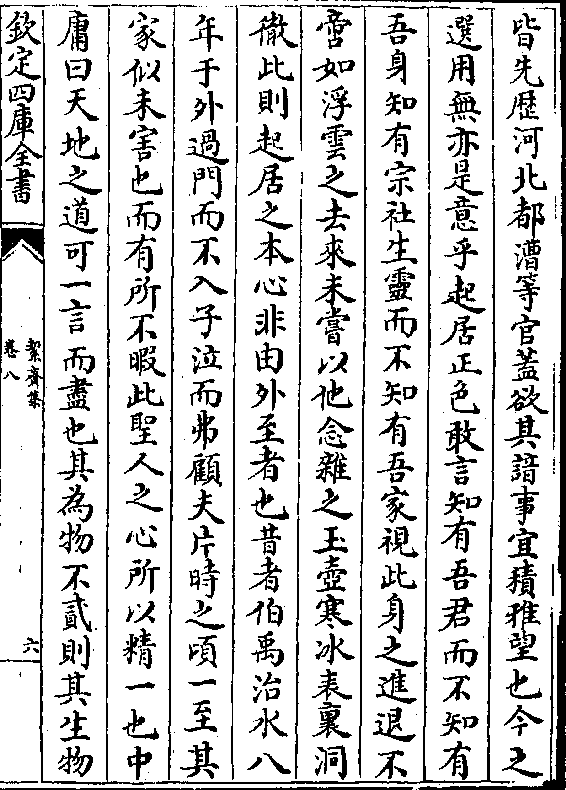 皆先歴河北都漕等官葢欲其諳事宜積雅望也今之
選用無亦是意乎起居正色敢言知有吾君而不知有
吾身知有宗社生靈而不知有吾家視此身之進退不
啻如浮雲之去來未嘗以他念雜之玉壺寒冰表裏洞
徹此則起居之本心非由外至者也昔者伯禹治水八
年于外過門而不入子泣而弗顧夫片時之頃一至其
家似未害也而有所不暇此聖人之心所以精一也中
庸曰天地之道可一言而盡也其為物不貳則其生物
欽定四庫全書
絜齋集
卷八
六